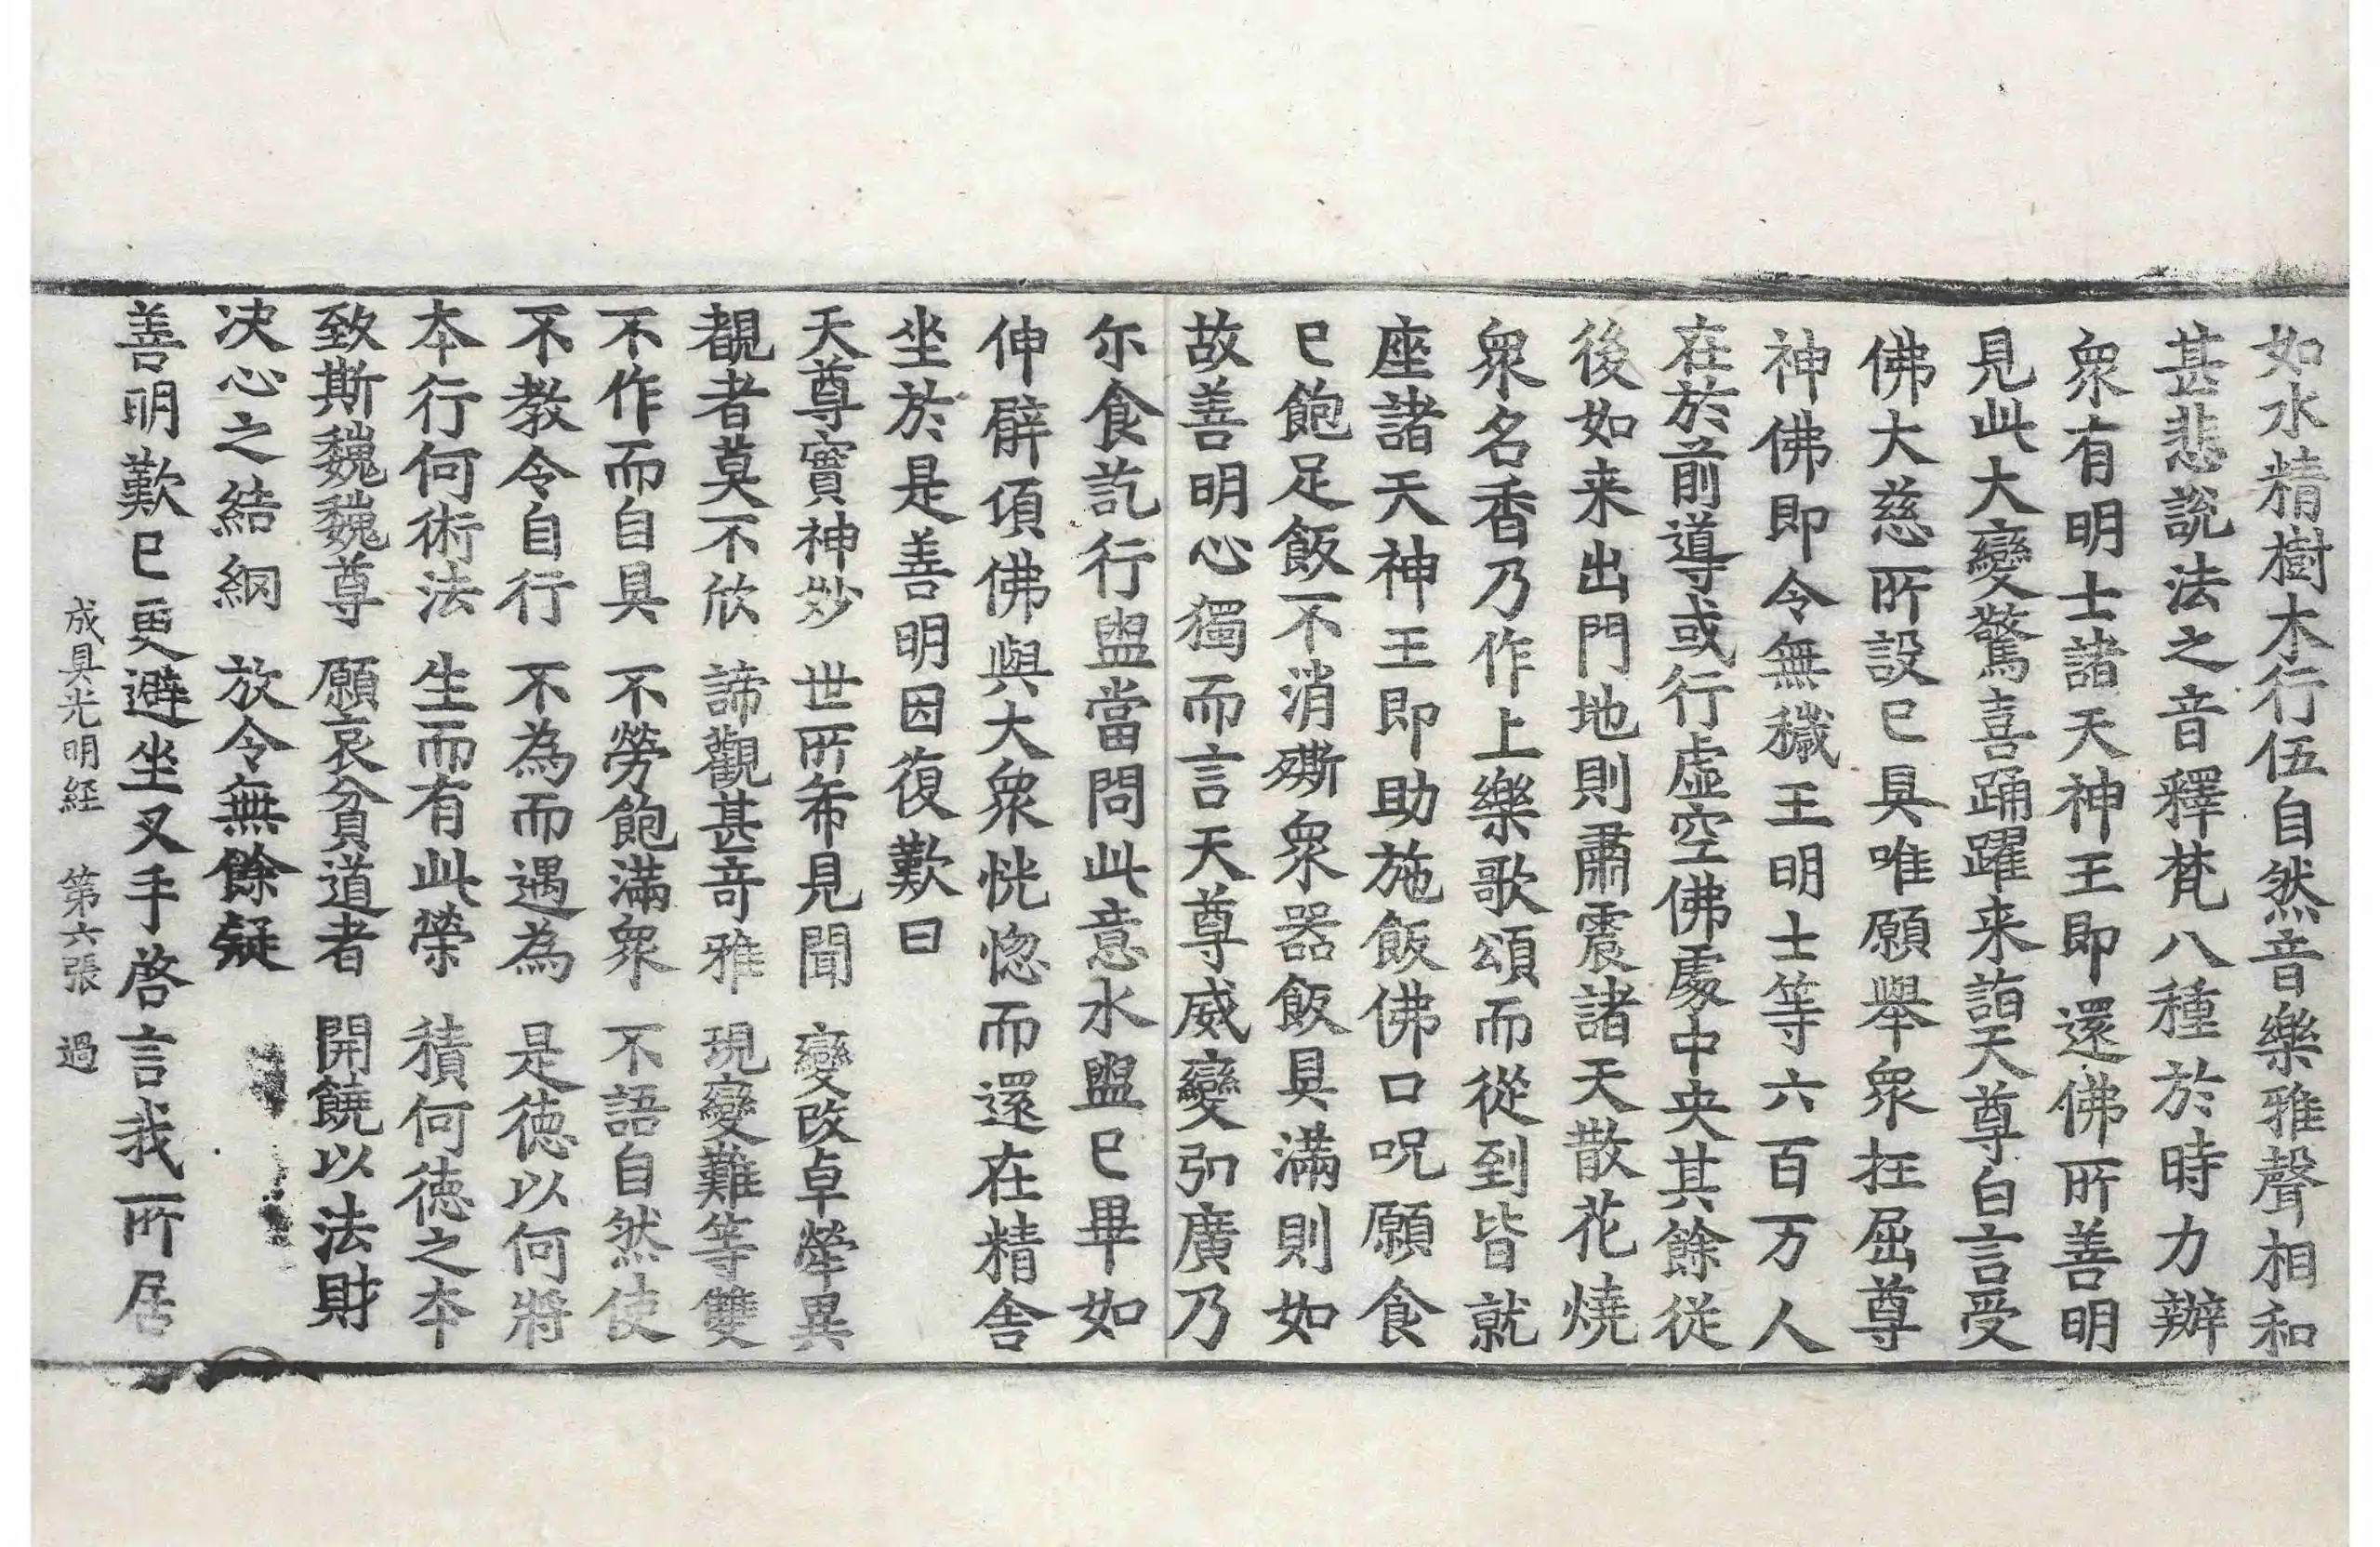 如水精樹木行伍自然音樂雅聲相和
甚悲說法之音釋梵八種於時力辦
衆有明士諸天神王即還佛所善明
見此大變驚喜踊躍来詣天尊白言受
佛大慈所設已具唯願舉衆抂屈尊
神佛即令無穢王明士等六百万人
在於前導或行虛空佛處中央其餘從
後如来出門地則肅震諸天散花燒
衆名香乃作上樂歌頌而從到皆就
座諸天神王即助施飯佛口呪願食
已飽足飯不消㒋衆器飯具滿則如
故善明心獨而言天尊威變弘廣乃
尒食訖行盥當問此意水盥已畢如
伸臂頃佛與大衆恍惚而還在精舍
坐於是善明因復歎曰
天尊實神妙　世所希見聞　變改卓犖異
覩者莫不欣　諦觀甚奇雅　現變難等雙
不作而自具　不勞飽滿衆　不語自然使
不教令自行　不為而遇為　是徳以何將
本行何術法　生而有此榮　積何徳之本
致斯巍巍尊　願哀貧道者　開饒以法財
决心之結網　放令無餘疑
善明歎已更避坐叉手啓言我所居
成具光明経　第六張　過